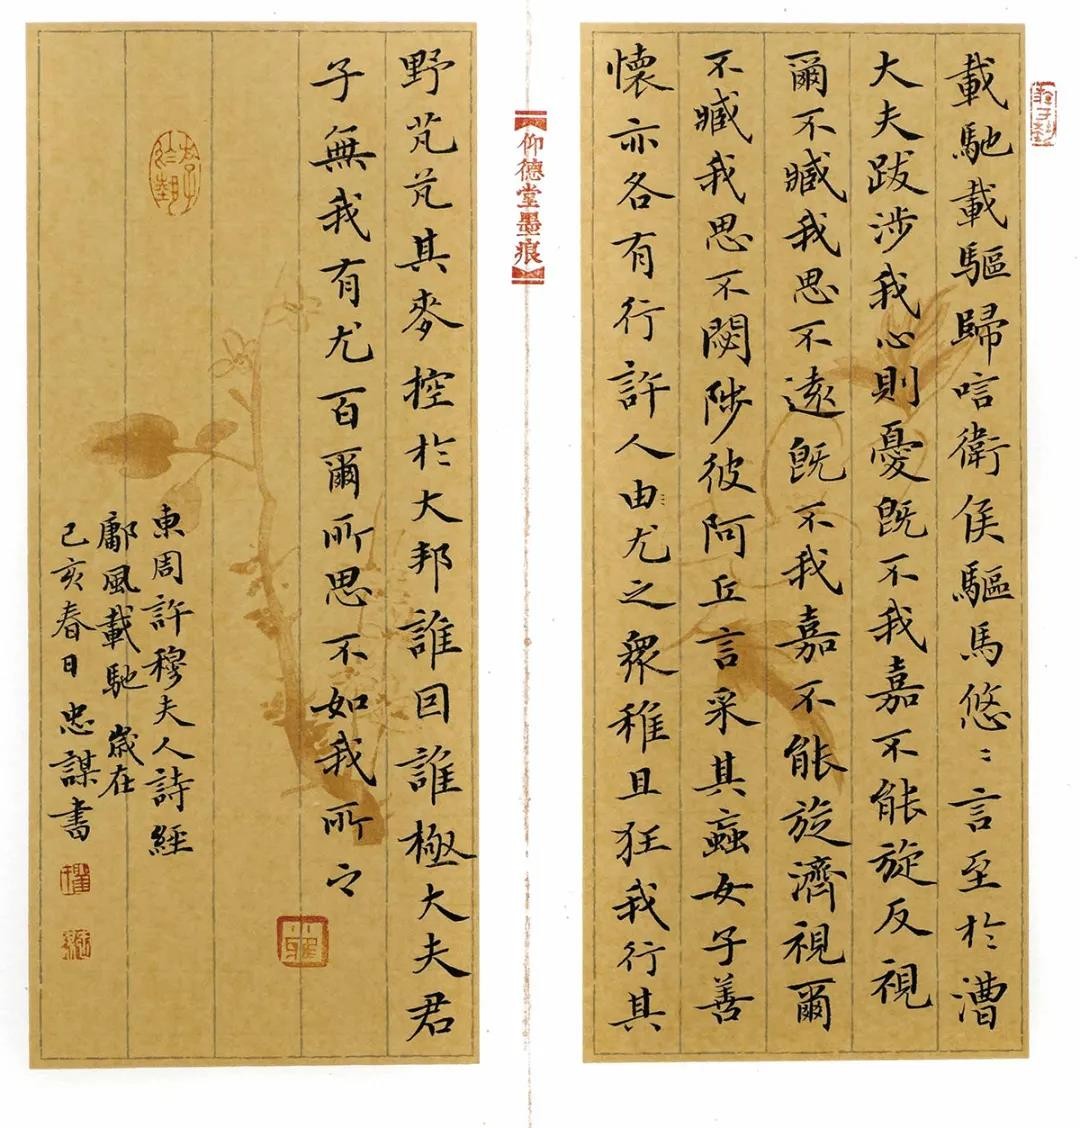 載馳載驅歸唁衛侯驅馬悠〻言至於漕
大夫跋涉我心則憂既不我嘉不能旋反視
爾不臧我思不遠既不我嘉不能旋濟視爾
不臧我思不閟陟彼阿丘言采其蝱女子善
懷亦各有行許人由尤之衆稚且狂我行其
仰德堂墨痕
野芃芃其麥控於大邦誰因誰極大夫君
子無我有尤百爾所思不如我所之
東周許穆夫人詩經
鄘風載馳 歲在
己亥春日忠謀書